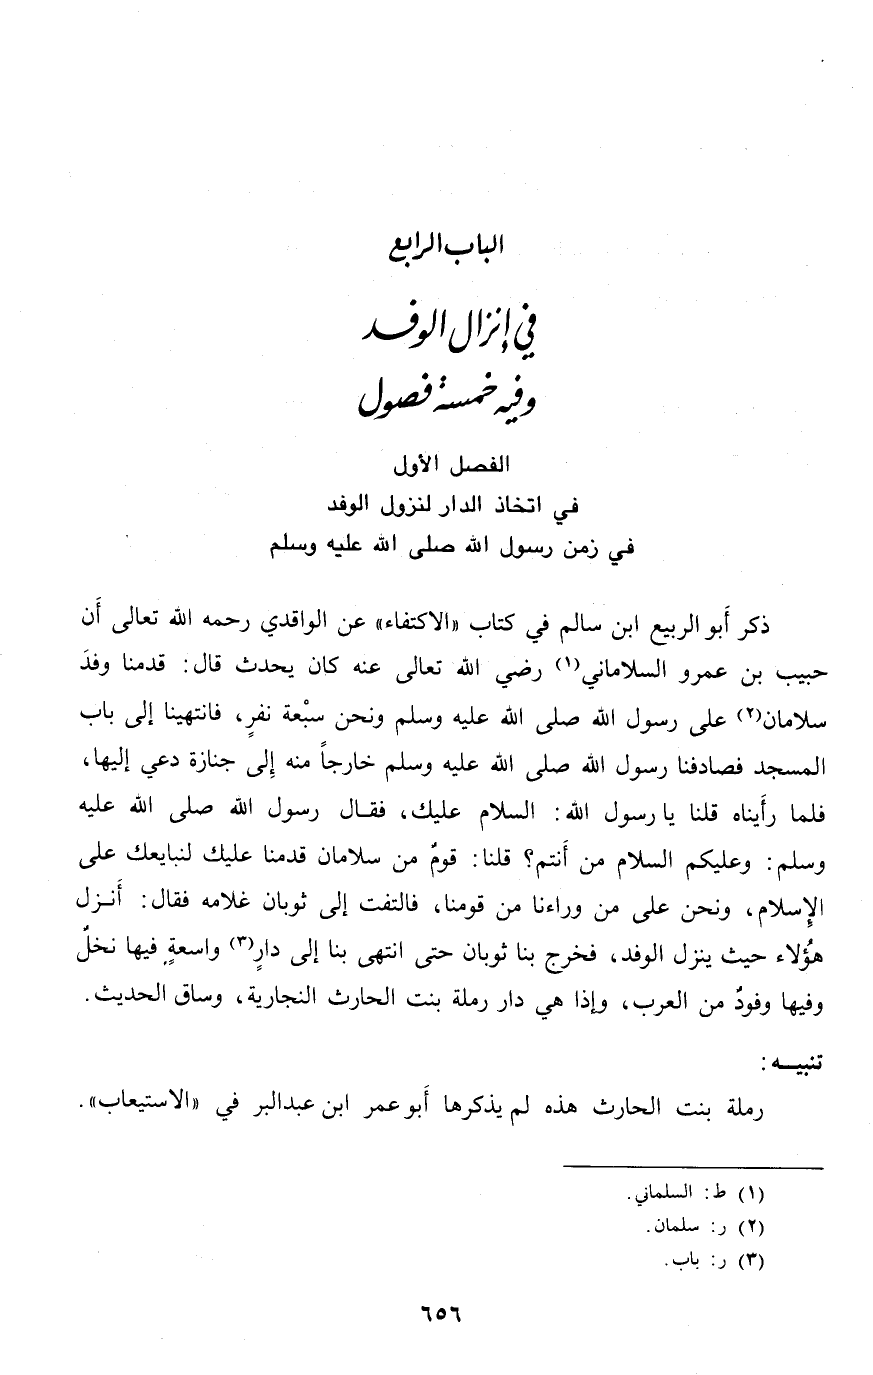 الباب الرابع
في إنزال الوفد
وفيه خمسة فصول
الفصل الأول
في اتخاذ الدار لنزول الوفد
في زمن رسول الله صلى الله عليه وسلم
ذكر أَبو الربيع ابن سالم في كتاب «الاكتفاء» عن الواقدي رحمه الله تعالى أَن
حبيب بن عمرو السلاماني(١) رضي الله تعالى عنه كان يحدث قال: قدمنا وفدَ
سلامان(٢) على رسول الله صلى الله عليه وسلم ونحن سبْعة نفرٍ، فانتهينا إلى باب
المسجد فصادفنا رسول الله صلى الله عليه وسلم خارجاً منه إِلى جنازة دعي إليها،
فلما رأَيناه قلنا يا رسول الله: السلام عليك، فقـال رسول الله صلى الله عليه
وسلم: وعليكم السلام من أَنتم؟ قلنا: قومٌ من سلامان قدمنا عليك لنبايعك على
الإِسلام، ونحن على من وراءنا من قومنا، فالتفت إلى ثوبان غلامه فقال: أَنـزل
هؤُلاء حيث ينزل الوفد، فخرج بنا ثوبان حتى انتهى بنا إلى دارٍ(٣) واسعةٍ فيها نخلٌ
وفيها وفودٌ من العرب، وإذا هي دار رملة بنت الحارث النجارية، وساق الحديث.
تنبيـــه:
رملة بنت الحارث هذه لم يذكرها أَبو عمر ابن عبدالبر في «الاستيعاب».
(١) ط: السلماني.
(٢) ر: سلمان.
(٣) ر: باب.
٦٥٦